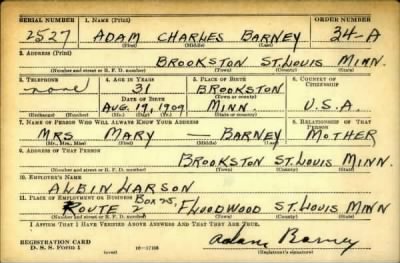 SERIAL NUMBER 1. NAME (Print) ORDER NUMBER
2527 ADAM CHARLES BARNEY 34-A
(First) (Middle) (Last)
2. ADDRESS (Print)
BROOKSTON ST. LOUIS MINN.
(Number and street or R. F. D. number) (Town) (County) (State)
3. TELEPHONE 4. AGE IN YEARS 5. PLACE OF BIRTH 6. COUNTRY OF CITIZENSHIP
none 31 BROOKSTON
DATE OF BIRTH (Town or county)
AUG. 19, 1909 MINN. U.S.A.
(Exchange) (Number) (Mo.) (Day) (Yr.) (State or country)
7. NAME OF PERSON WHO WILL ALWAYS KNOW YOUR ADDRESS 8. RELATIONSHIP OF THAT PERSON
MRS MARY — BARNEY MOTHER
(Mr., Mrs., Miss) (First) (Middle) (Last)
9. ADDRESS OF THAT PERSON
BROOKSTON ST. LOUIS MINN.
(Number and street or R. F. D. number) (Town) (County) (State)
10. EMPLOYER'S NAME
ALBIN LARSON
11. PLACE OF EMPLOYMENT OR BUSINESS BOX 25,
ROUTE 2 FLOODWOOD ST. LOUIS MINN
(Number and street or R. F. D. number) (Town) (County) (State)
I AFFIRM THAT I HAVE VERIFIED ABOVE ANSWERS AND THAT THEY ARE TRUE.
REGISTRATION CARD
D. S. S. Form 1 Adam Barney
(Registrant's signature)